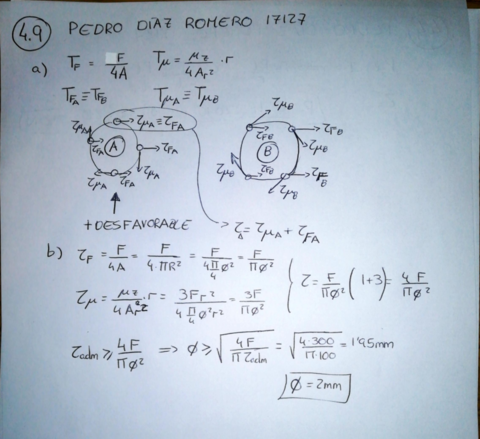 4.9 PEDRO DÍAZ ROMERO 17127
a) τF = F/4A τμ = μz/4Ar² · r
τFA ≡ τFB τμA ≡ τμB
τμA τμA ≡ τFA τμB τFB
τFA A τFA τFB B τμB
τμA τFA τμA τμB τFB τμB τFB
+ DESFAVORABLE τA = τμA + τFA
b) τF = F/4A = F/4·πR² = F/4 π/4 φ² = F/πφ²
τμ = μz/4Ar² · r = 3Fr²/4 π/4 φ²r² = 3F/πφ² τ = F/πφ² (1+3) = 4F/πφ²
τadm ≥ 4F/πφ² => φ ≥ √(4F/πτadm) = √(4·300/π·100) = 1'95mm
φ = 2mm